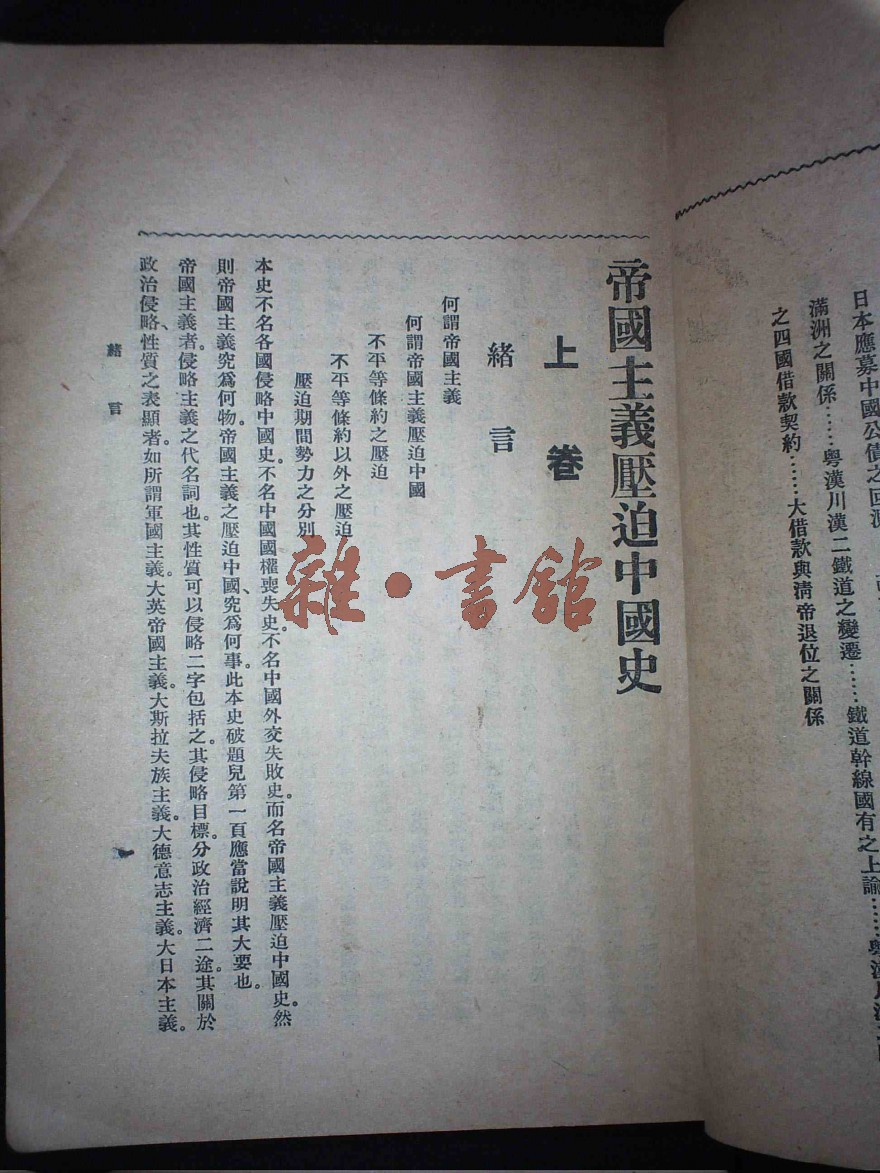 日本應募中國公債之回溯
滿洲之關係……粵漢川漢二鐵道之變遷……鐵道幹線國有之上諭……粵漢川漢
之四國借款契約……大借款與淸帝退位之關係
帝國主義壓迫中國史
上卷
緖言
何謂帝國主義
何謂帝國主義壓迫中國
不平等條約之壓迫
不平等條約以外之壓迫
壓迫期間勢力之分別
本史不名各國侵略中國史。不名中國國權喪失史。不名中國外交失敗史。而名帝國主義壓迫中國史。然
則帝國主義究爲何物。帝國主義之壓迫中國、究爲何事。此本史破題兒第一頁應當說明其大要也。
帝國主義者。侵略主義之代名詞也。其性質可以侵略二字包括之。其侵略目標。分政治經濟二途。其關於
政治侵略、性質之表顯者。如所謂軍國主義。大英帝國主義。大斯拉夫族主義。大德意志主義。大日本主義。
緖言
雜·書館